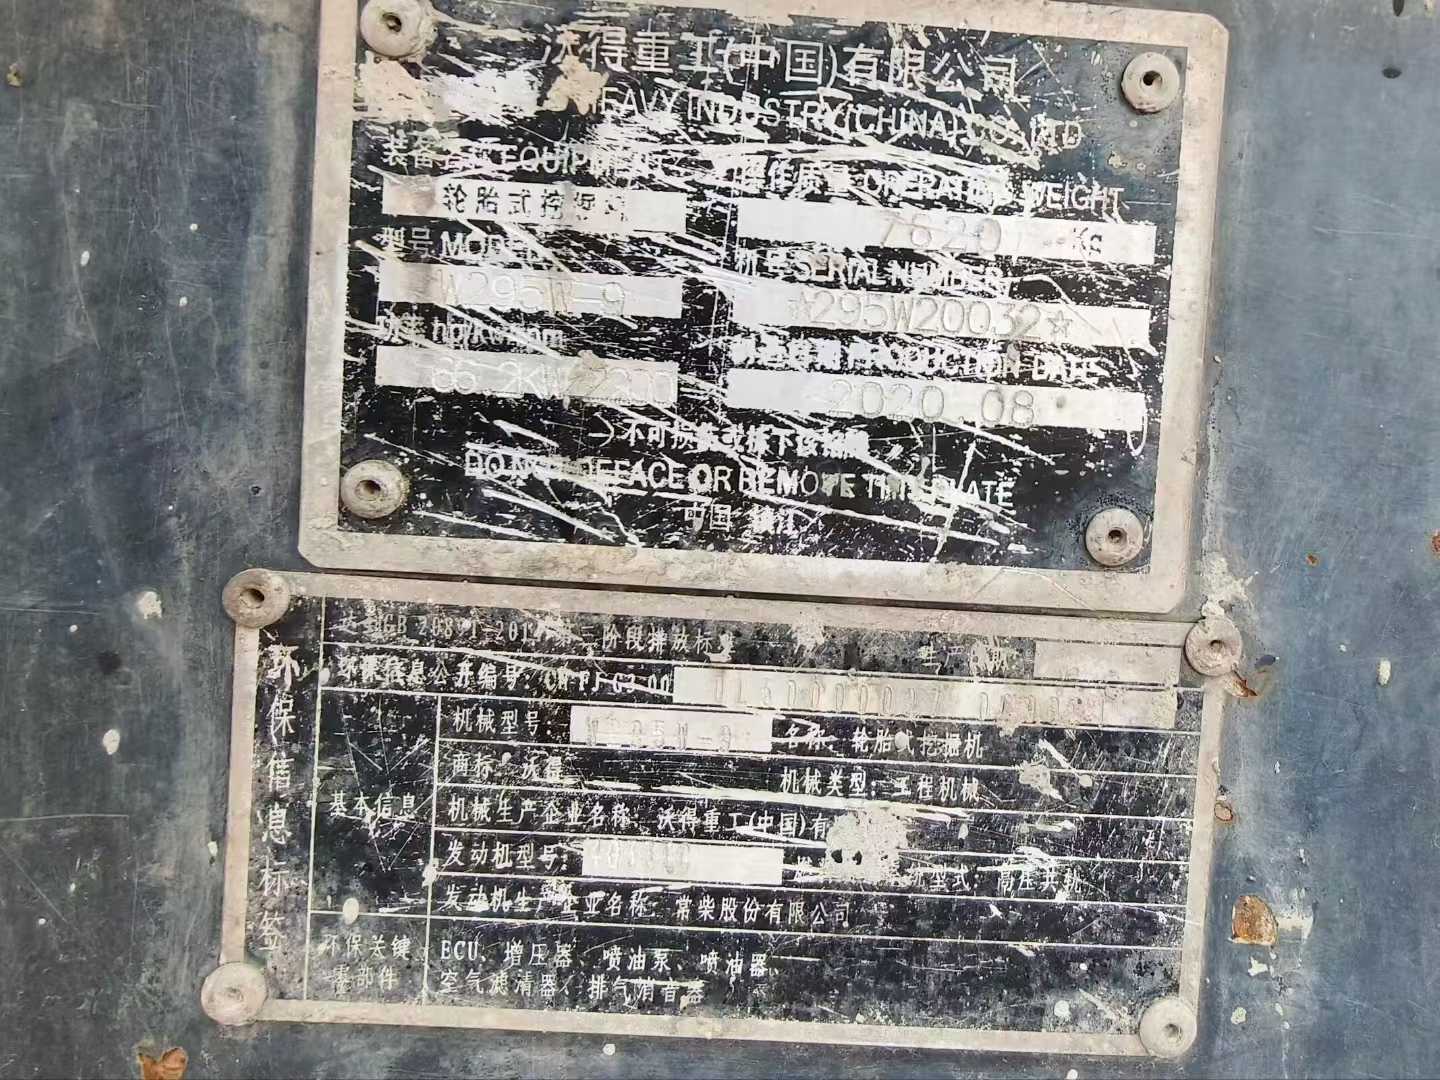 沃得重工(中国)有限公司
HEAVY INDUSTRY(CHINA)CO.,LTD
装备名称 EQUIPMENT
操作质量 OPERATING WEIGHT
轮胎式挖掘机
7820 Kg
型号 MODEL
机号 SERIAL NUMBER
W295W-9
☆295W20032☆
功率 hp/kw/rpm
制造日期 PRODUCTION DATE
66.2KW/2300
2020.08
不可损毁或拆下该铭牌
DO NOT DEFACE OR REMOVE THIS PLATE
中国 镇江
环保信息标签
达到GB 20891-2014第三阶段排放标
生产日期:
环保信息公开编号: CN FJ G3 00
基本信息
机械型号 W295W-9
名称: 轮胎式挖掘机
商标: 沃得
机械类型: 工程机械
机械生产企业名称: 沃得重工(中国)有
发动机型号:
型式: 高压共轨
发动机生产企业名称: 常柴股份有限公司
环保关键
零部件
ECU、增压器、喷油泵、喷油器、
空气滤清器、排气消音器